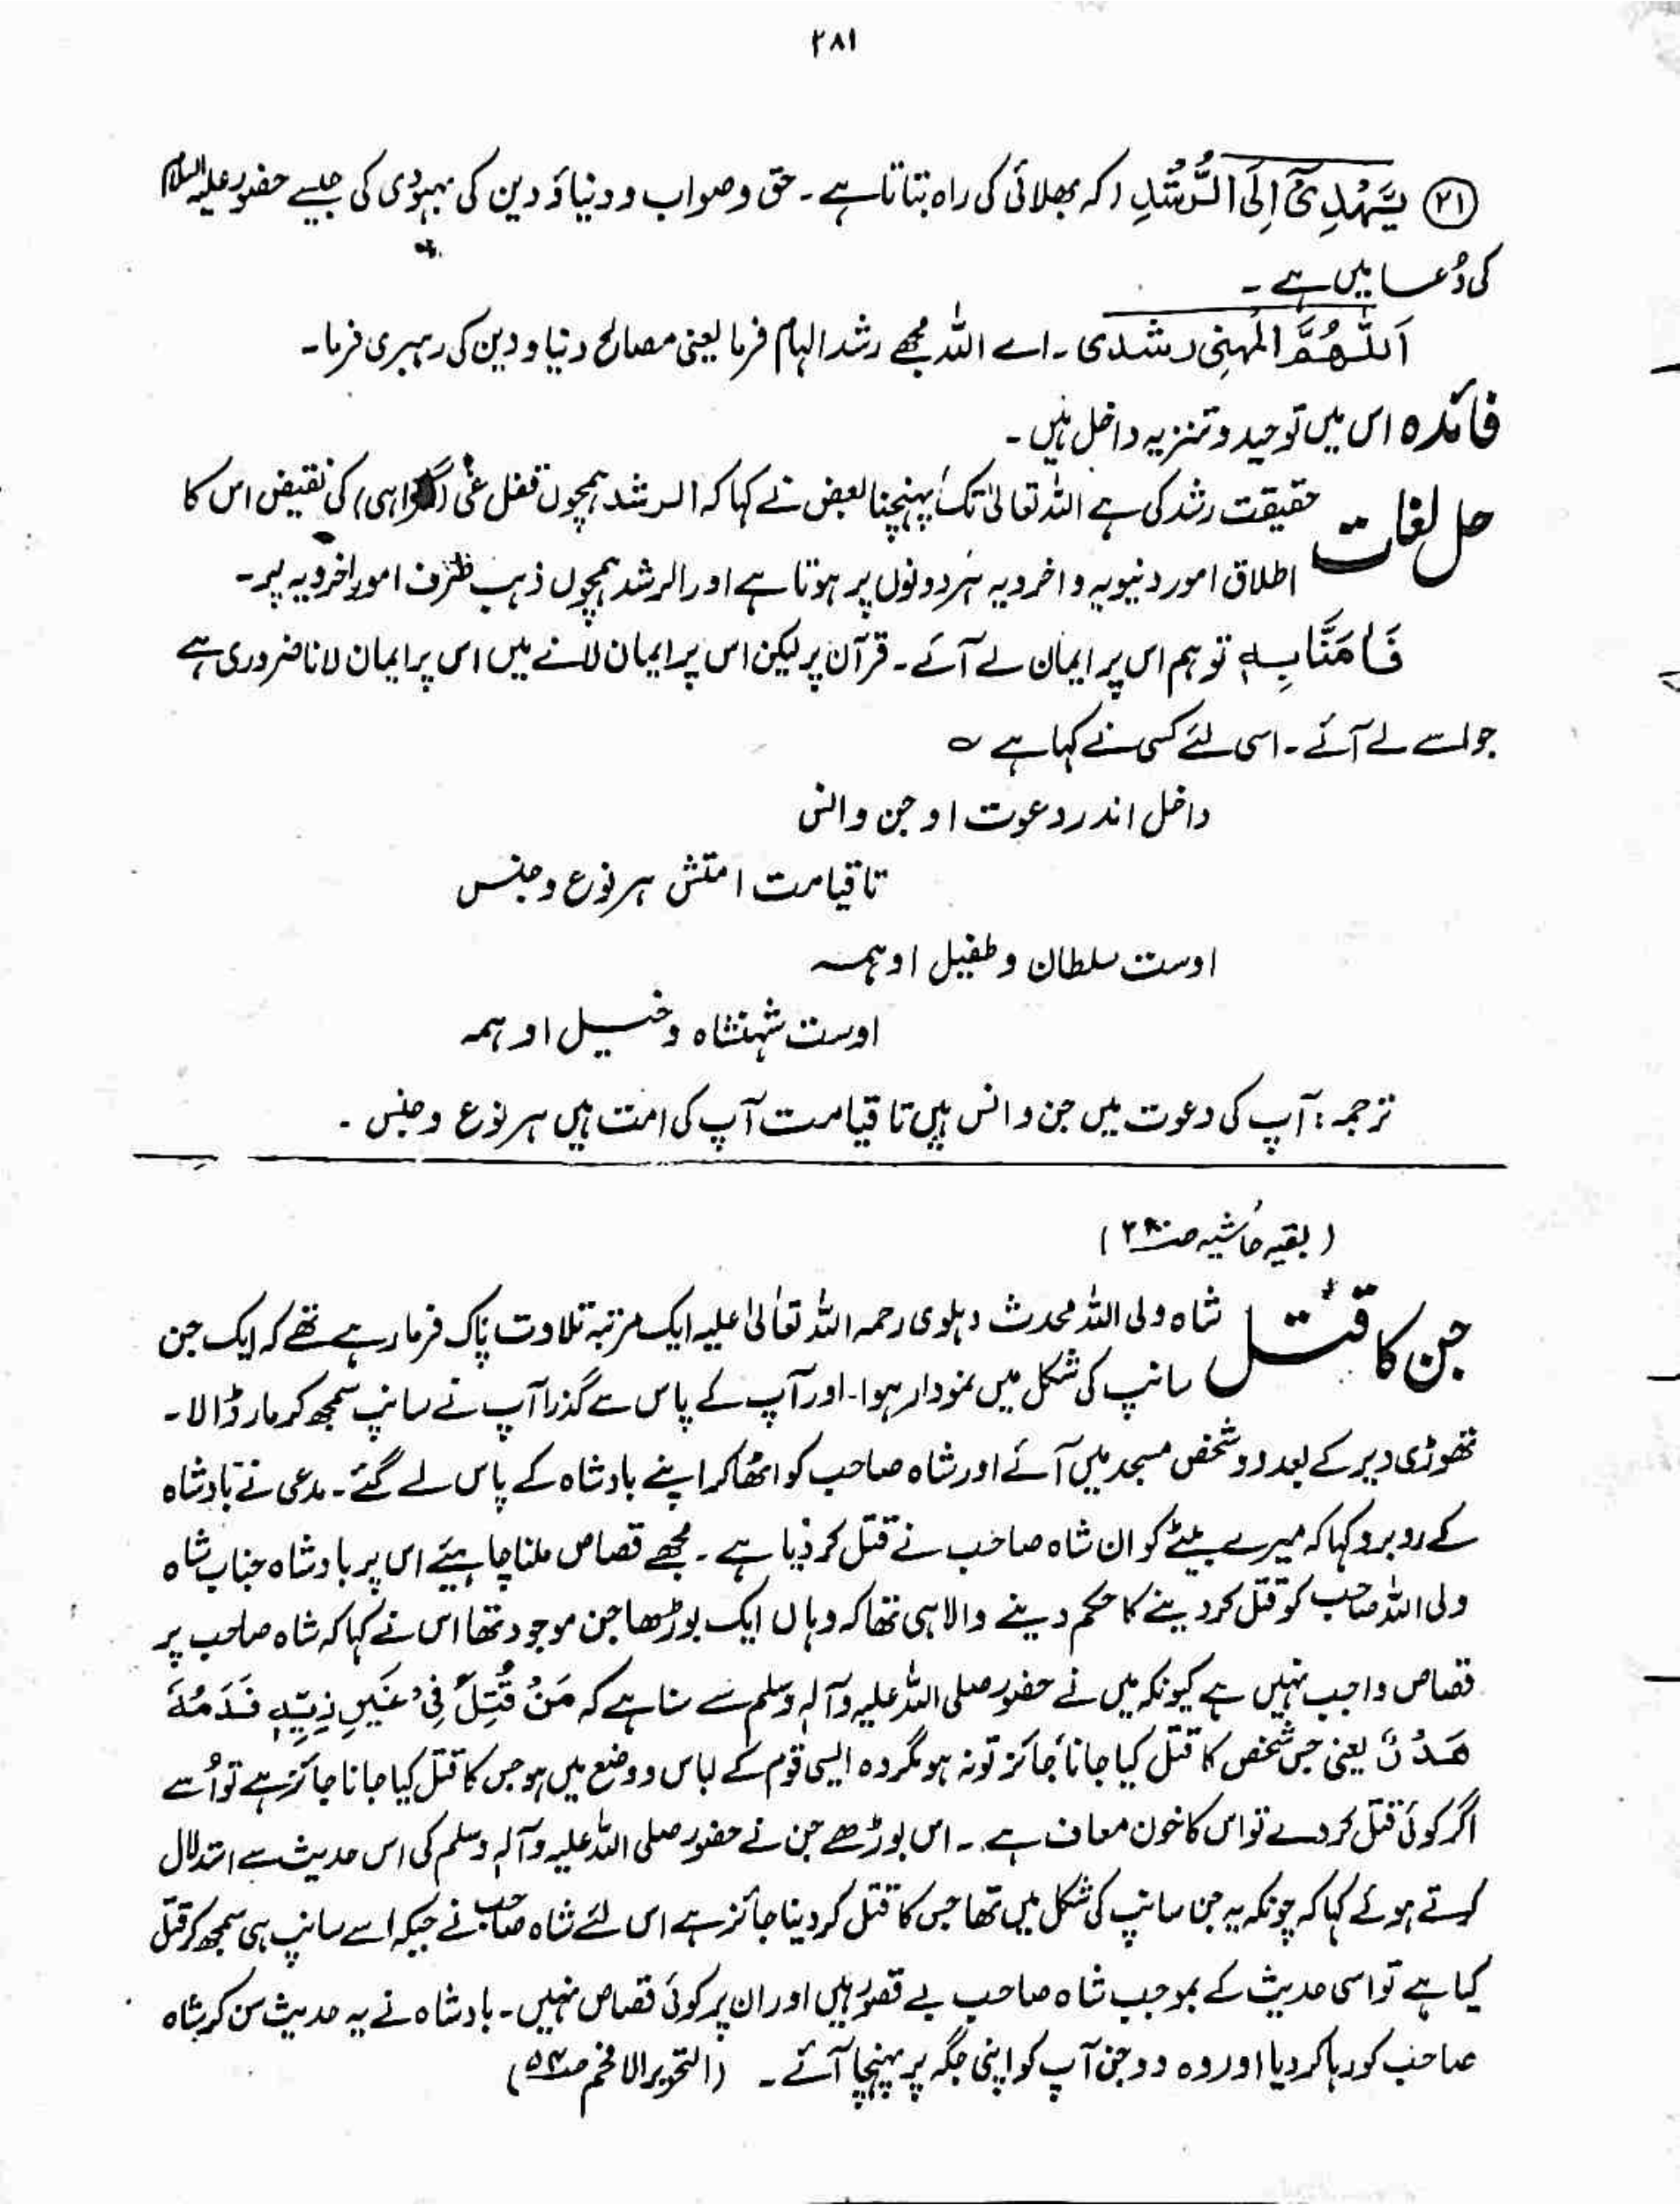 ۲۸۱
(۲۱) یَّهْدِیْٓ اِلَی الرُّشْدِ (کہ بھلائی کی راہ بتاتا ہے ۔ حق و صواب و دنیا و دین کی بہبودی کی جیسے حضور علیہ السلام
کی دُعا میں ہے ۔
اَللّٰھُمَّ الْہِمْنِی رشدی ۔ اے اللہ مجھے رشد الہام فرما یعنی مصالح دنیا و دین کی رہبری فرما ۔
فائدہ اس میں توحید و تنزیہ داخل ہیں ۔
حل لغات حقیقت رشد کی ہے اللہ تعالیٰ تک پہنچنا بعض نے کہا کہ الرشد ہمچوں قفل غی (گمراہی) کی نقیض اس کا
اطلاق امور دنیویہ و اخرویہ ہر دونوں پر ہوتا ہے اور الرشد ہمچوں ذہب ظرف امور اخرویہ پر ۔
فَاٰمَنَّا بِہٖ تو ہم اس پر ایمان لے آئے ۔ قرآن پر لیکن اس پر ایمان لانے میں اس پر ایمان لانا ضروری ہے
جو اسے لے آئے ۔ اسی لئے کسی نے کہا ہے ؎
داخل اندر دعوت او جن و انس
تا قیامت امتش ہر نوع و جنس
اوست سلطان و طفیل او ہمہ
اوست شہنشاہ و خیل او ہمہ
ترجمہ : آپ کی دعوت میں جن و انس ہیں تا قیامت آپ کی امت ہیں ہر نوع و جنس ۔
(بقیہ حاشیہ صـ۲۸۰)
جن کا قتل شاہ ولی اللہ محدث دہلوی رحمہ اللہ تعالیٰ علیہ ایک مرتبہ تلاوت پاک فرما رہے تھے کہ ایک جن
سانپ کی شکل میں نمودار ہوا ۔ اور آپ کے پاس سے گذرا آپ نے سانپ سمجھ کر مار ڈالا ۔
تھوڑی دیر کے بعد دو شخص مسجد میں آئے اور شاہ صاحب کو اٹھا کر اپنے بادشاہ کے پاس لے گئے ۔ مدعی نے بادشاہ
کے روبرو کہا کہ میرے بیٹے کو ان شاہ صاحب نے قتل کر دیا ہے ۔ مجھے قصاص ملنا چاہیئے اس پر بادشاہ جناب شاہ
ولی اللہ صاحب کو قتل کر دینے کا حکم دینے والا ہی تھا کہ وہاں ایک بوڑھا جن موجود تھا اس نے کہا کہ شاہ صاحب پر
قصاص واجب نہیں ہے کیونکہ میں نے حضور صلی اللہ علیہ وآلہ وسلم سے سنا ہے کہ مَنْ قُتِلَ فِیْ غَیْرِ زِیِّہٖ فَدَمُہٗ
ھَدْرٌ یعنی جس شخص کا قتل کیا جانا جائز تو نہ ہو مگر وہ ایسی قوم کے لباس و وضع میں ہو جس کا قتل کیا جانا جائز ہے تو اُسے
اگر کوئی قتل کر دے تو اس کا خون معاف ہے ۔ اس بوڑھے جن نے حضور صلی اللہ علیہ وآلہ وسلم کی اس حدیث سے استدلال
کرتے ہوئے کہا کہ چونکہ یہ جن سانپ کی شکل میں تھا جس کا قتل کر دینا جائز ہے اس لئے شاہ صاحب نے جبکہ اسے سانپ ہی سمجھ کر قتل
کیا ہے تو اسی حدیث کے بموجب شاہ صاحب بے قصور ہیں اور ان پر کوئی قصاص نہیں ۔ بادشاہ نے یہ حدیث سن کر شاہ
صاحب کو رہا کر دیا اور وہ دو جن آپ کو اپنی جگہ پر پہنچا آئے ۔ (التحویر الافخم صـ۵۴)